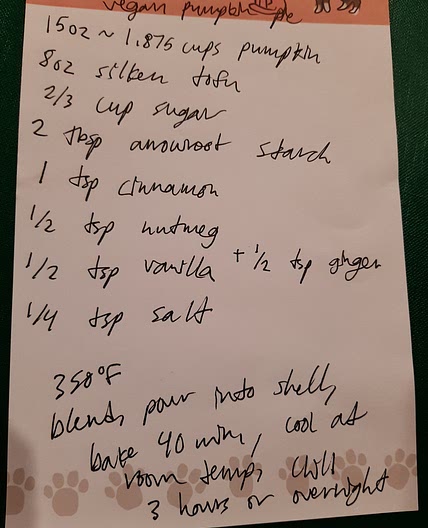 vegan pumpkin pie
15oz ~ 1.875 cups pumpkin
8oz silken tofu
2/3 cup sugar
2 tbsp arrowroot starch
1 tsp cinnamon
1/2 tsp nutmeg
1/2 tsp vanilla + 1/2 tsp ginger
1/4 tsp salt
350°F
blend, pour into shell,
bake 40 min, cool at
room temp, chill
3 hours or overnight